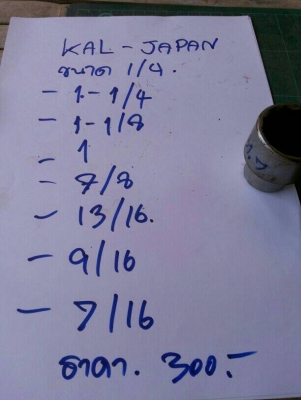 KAL - JAPAN
ขนาด 1/4.
- 1-1/4
- 1-1/8
- 1
- 7/8
- 13/16.
- 9/16
- 7/16
ราคา. 300.-